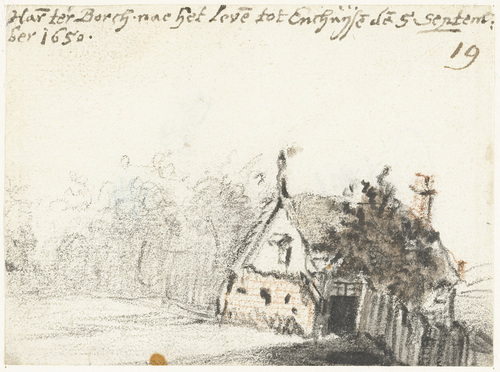 Harm̄ ter Borch · nae het leve͞n tot Enchuÿse de͞ 5 Septem:
ber 1650 ·
19